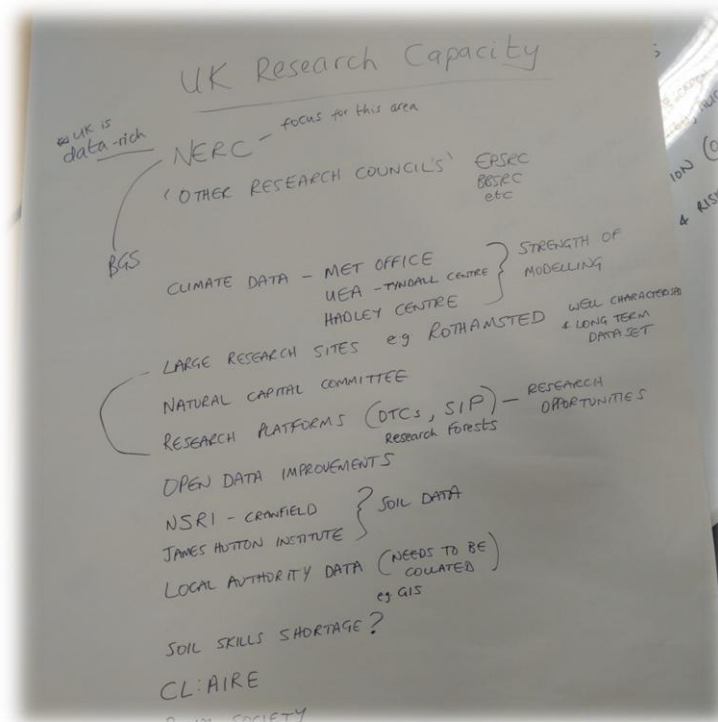 UK Research Capacity
UK is
data-rich
NERC - focus for this area
'OTHER RESEARCH COUNCIL'S' EPSRC
BBSRC
etc
BGS
CLIMATE DATA - MET OFFICE
UEA - TYNDALL CENTRE
HADLEY CENTRE
STRENGTH OF
MODELLING
LARGE RESEARCH SITES eg ROTHAMSTED
WELL CHARACTERISED
& LONG TERM
DATASET
NATURAL CAPITAL COMMITTEE
RESEARCH PLATFORMS (DTCs, SIP) - RESEARCH
OPPORTUNITIES
Research Forests
OPEN DATA IMPROVEMENTS
NSRI - CRANFIELD
JAMES HUTTON INSTITUTE
SOIL DATA
LOCAL AUTHORITY DATA (NEEDS TO BE
COLLATED)
eg GIS
SOIL SKILLS SHORTAGE?
CL:AIRE
SOCIETY
& RISK